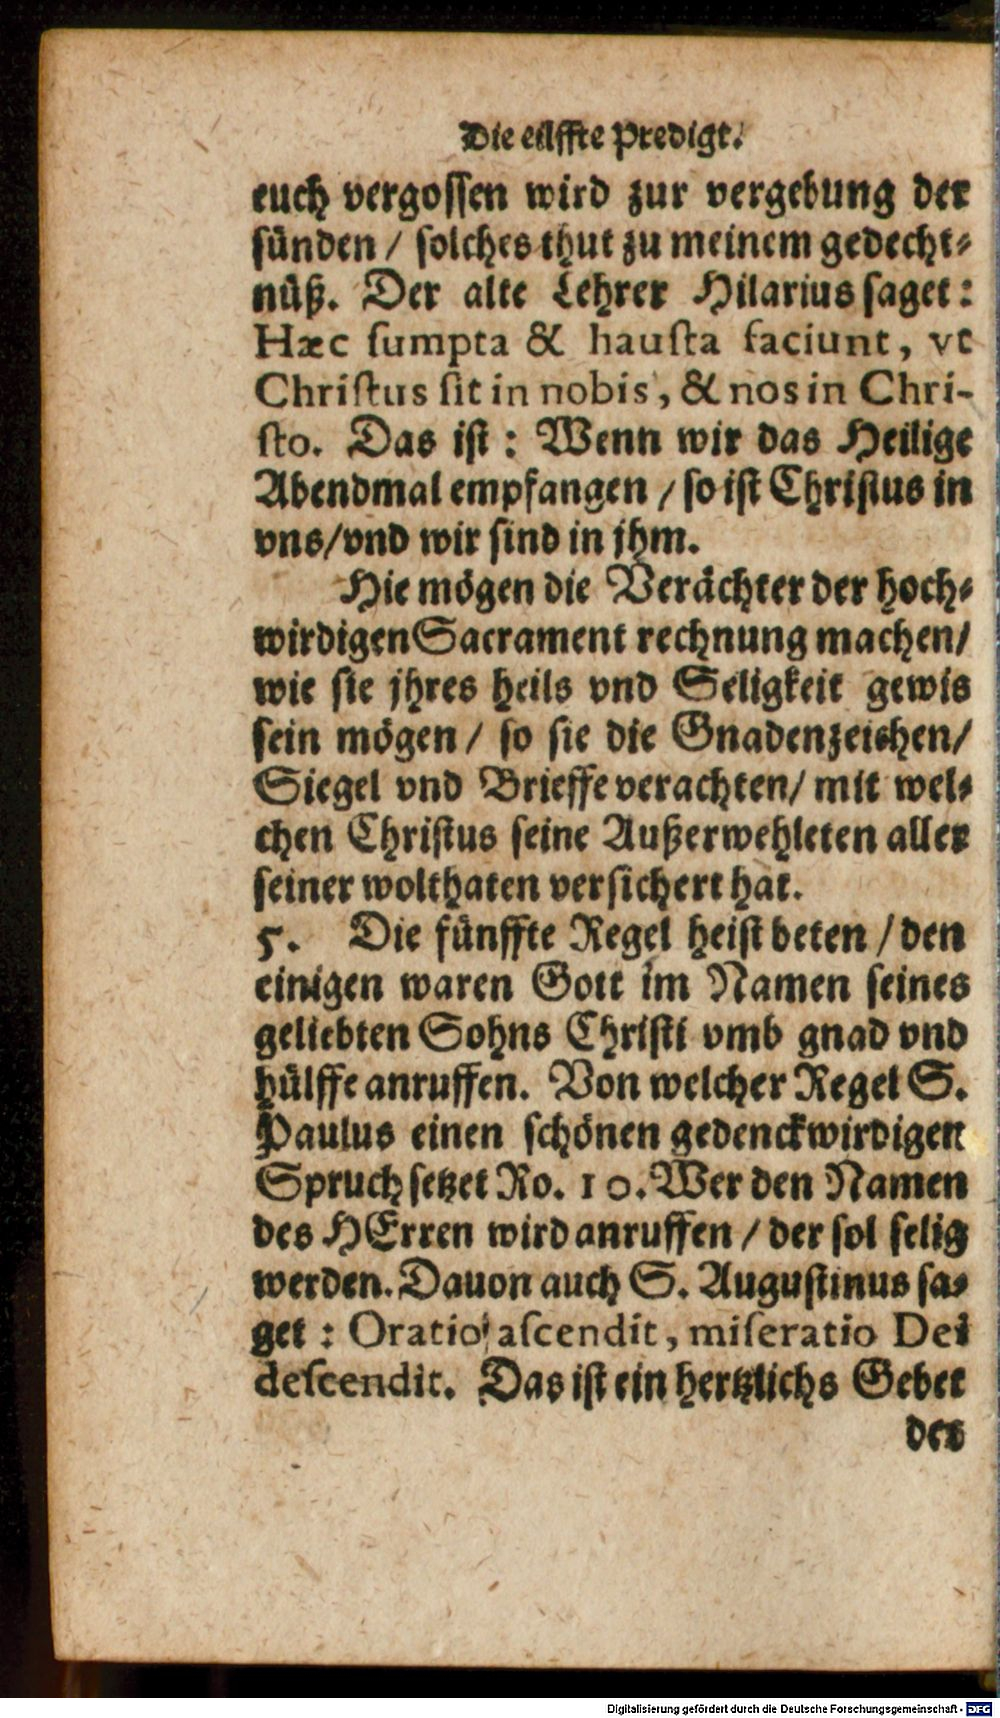 Die eilffte Predigt.
euch vergossen wird zur vergebung der
sünden / solches thut zu meinem gedecht-
nüß. Der alte Lehrer Hilarius saget:
Hæc ſumpta & hauſta faciunt, vt
Chriſtus ſit in nobis, & nos in Chri-
ſto. Das ist: Wenn wir das Heilige
Abendmal empfangen / so ist Christus in
vns/vnd wir sind in jhm.
Hie mögen die Verächter der hoch-
wirdigen Sacrament rechnung machen/
wie sie jhres heils vnd Seligkeit gewis
sein mögen / so sie die Gnadenzeichen/
Siegel vnd Brieffe verachten/ mit wel-
chen Christus seine Außerwehleten aller
seiner wolthaten versichert hat.
5. Die fünffte Regel heist beten / den
einigen waren Gott im Namen seines
geliebten Sohns Christi vmb gnad vnd
hülffe anruffen. Von welcher Regel S.
Paulus einen schönen gedenckwirdigen
Spruch setzet Ro. 10. Wer den Namen
des HErren wird anruffen / der sol selig
werden. Dauon auch S. Augustinus sa-
get: Oratio aſcendit, miſeratio Dei
deſcendit. Das ist ein hertzlichs Gebet
der
Digitalisierung gefördert durch die Deutsche Forschungsgemeinschaft - DFG